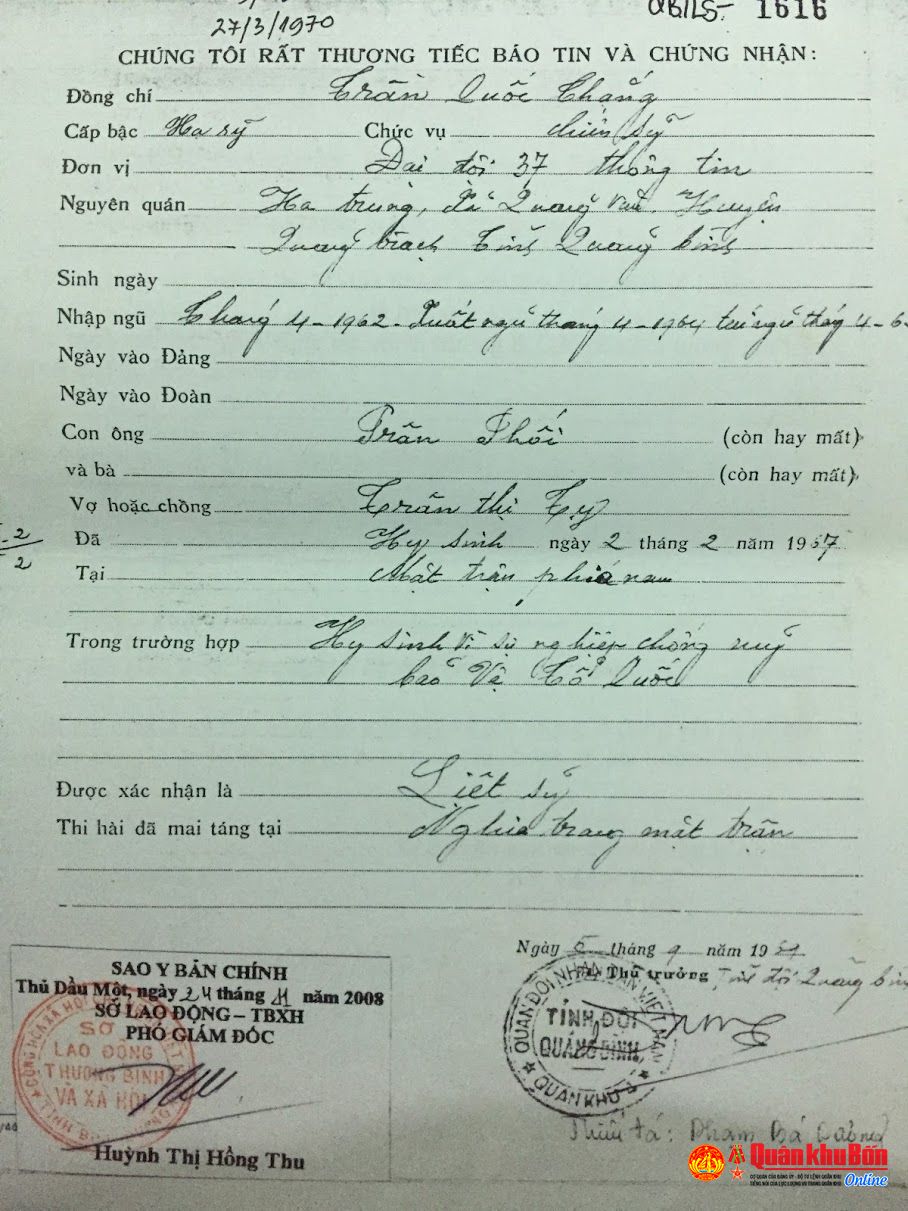 27/3/1970
1616
CHÚNG TÔI RẤT THƯƠNG TIẾC BÁO TIN VÀ CHỨNG NHẬN:
Đồng chí Trần Quốc Thắng
Cấp bậc Hạ sỹ Chức vụ chiến sỹ
Đơn vị Đại đội 37 thông tin
Nguyên quán Hạ trung, Xã Quảng Văn. Huyện
Quảng trạch Tỉnh Quảng bình
Sinh ngày
Nhập ngũ Tháng 4-1962. Xuất ngũ tháng 4-1964 tái ngũ tháng 4-6
Ngày vào Đảng
Ngày vào Đoàn
Con ông Trần Phối (còn hay mất)
và bà (còn hay mất)
Vợ hoặc chồng Trần thị Ty
Đã Hy sinh ngày 2 tháng 2 năm 1967
2
2
Tại Mặt trận phía nam
Trong trường hợp Hy sinh vì sự nghiệp chống mỹ
bảo Vệ Tổ Quốc
Được xác nhận là Liệt sỹ
Thi hài đã mai táng tại Nghĩa trang mặt trận
Ngày 5 tháng 9 năm 19
Thủ trưởng Tỉnh đội Quảng bình
QUÂN ĐỘI NHÂN DÂN VIỆT NAM
TỈNH ĐỘI
QUẢNG BÌNH
QUÂN KHU
Thiếu tá: Phạm Bá
SAO Y BẢN CHÍNH
Thủ Dầu Một, ngày 24 tháng 11 năm 2008
SỞ LAO ĐỘNG – TBXH
PHÓ GIÁM ĐỐC
SỞ
LAO ĐỘNG
THƯƠNG BINH
VÀ XÃ HỘI
Huỳnh Thị Hồng Thu
Quân khu Bốn
CƠ QUAN CỦA ĐẢNG ỦY - BỘ TƯ LỆNH QUÂN KHU
TIẾNG NÓI CỦA LỰC LƯỢNG VŨ TRANG QUÂN KHU
Online